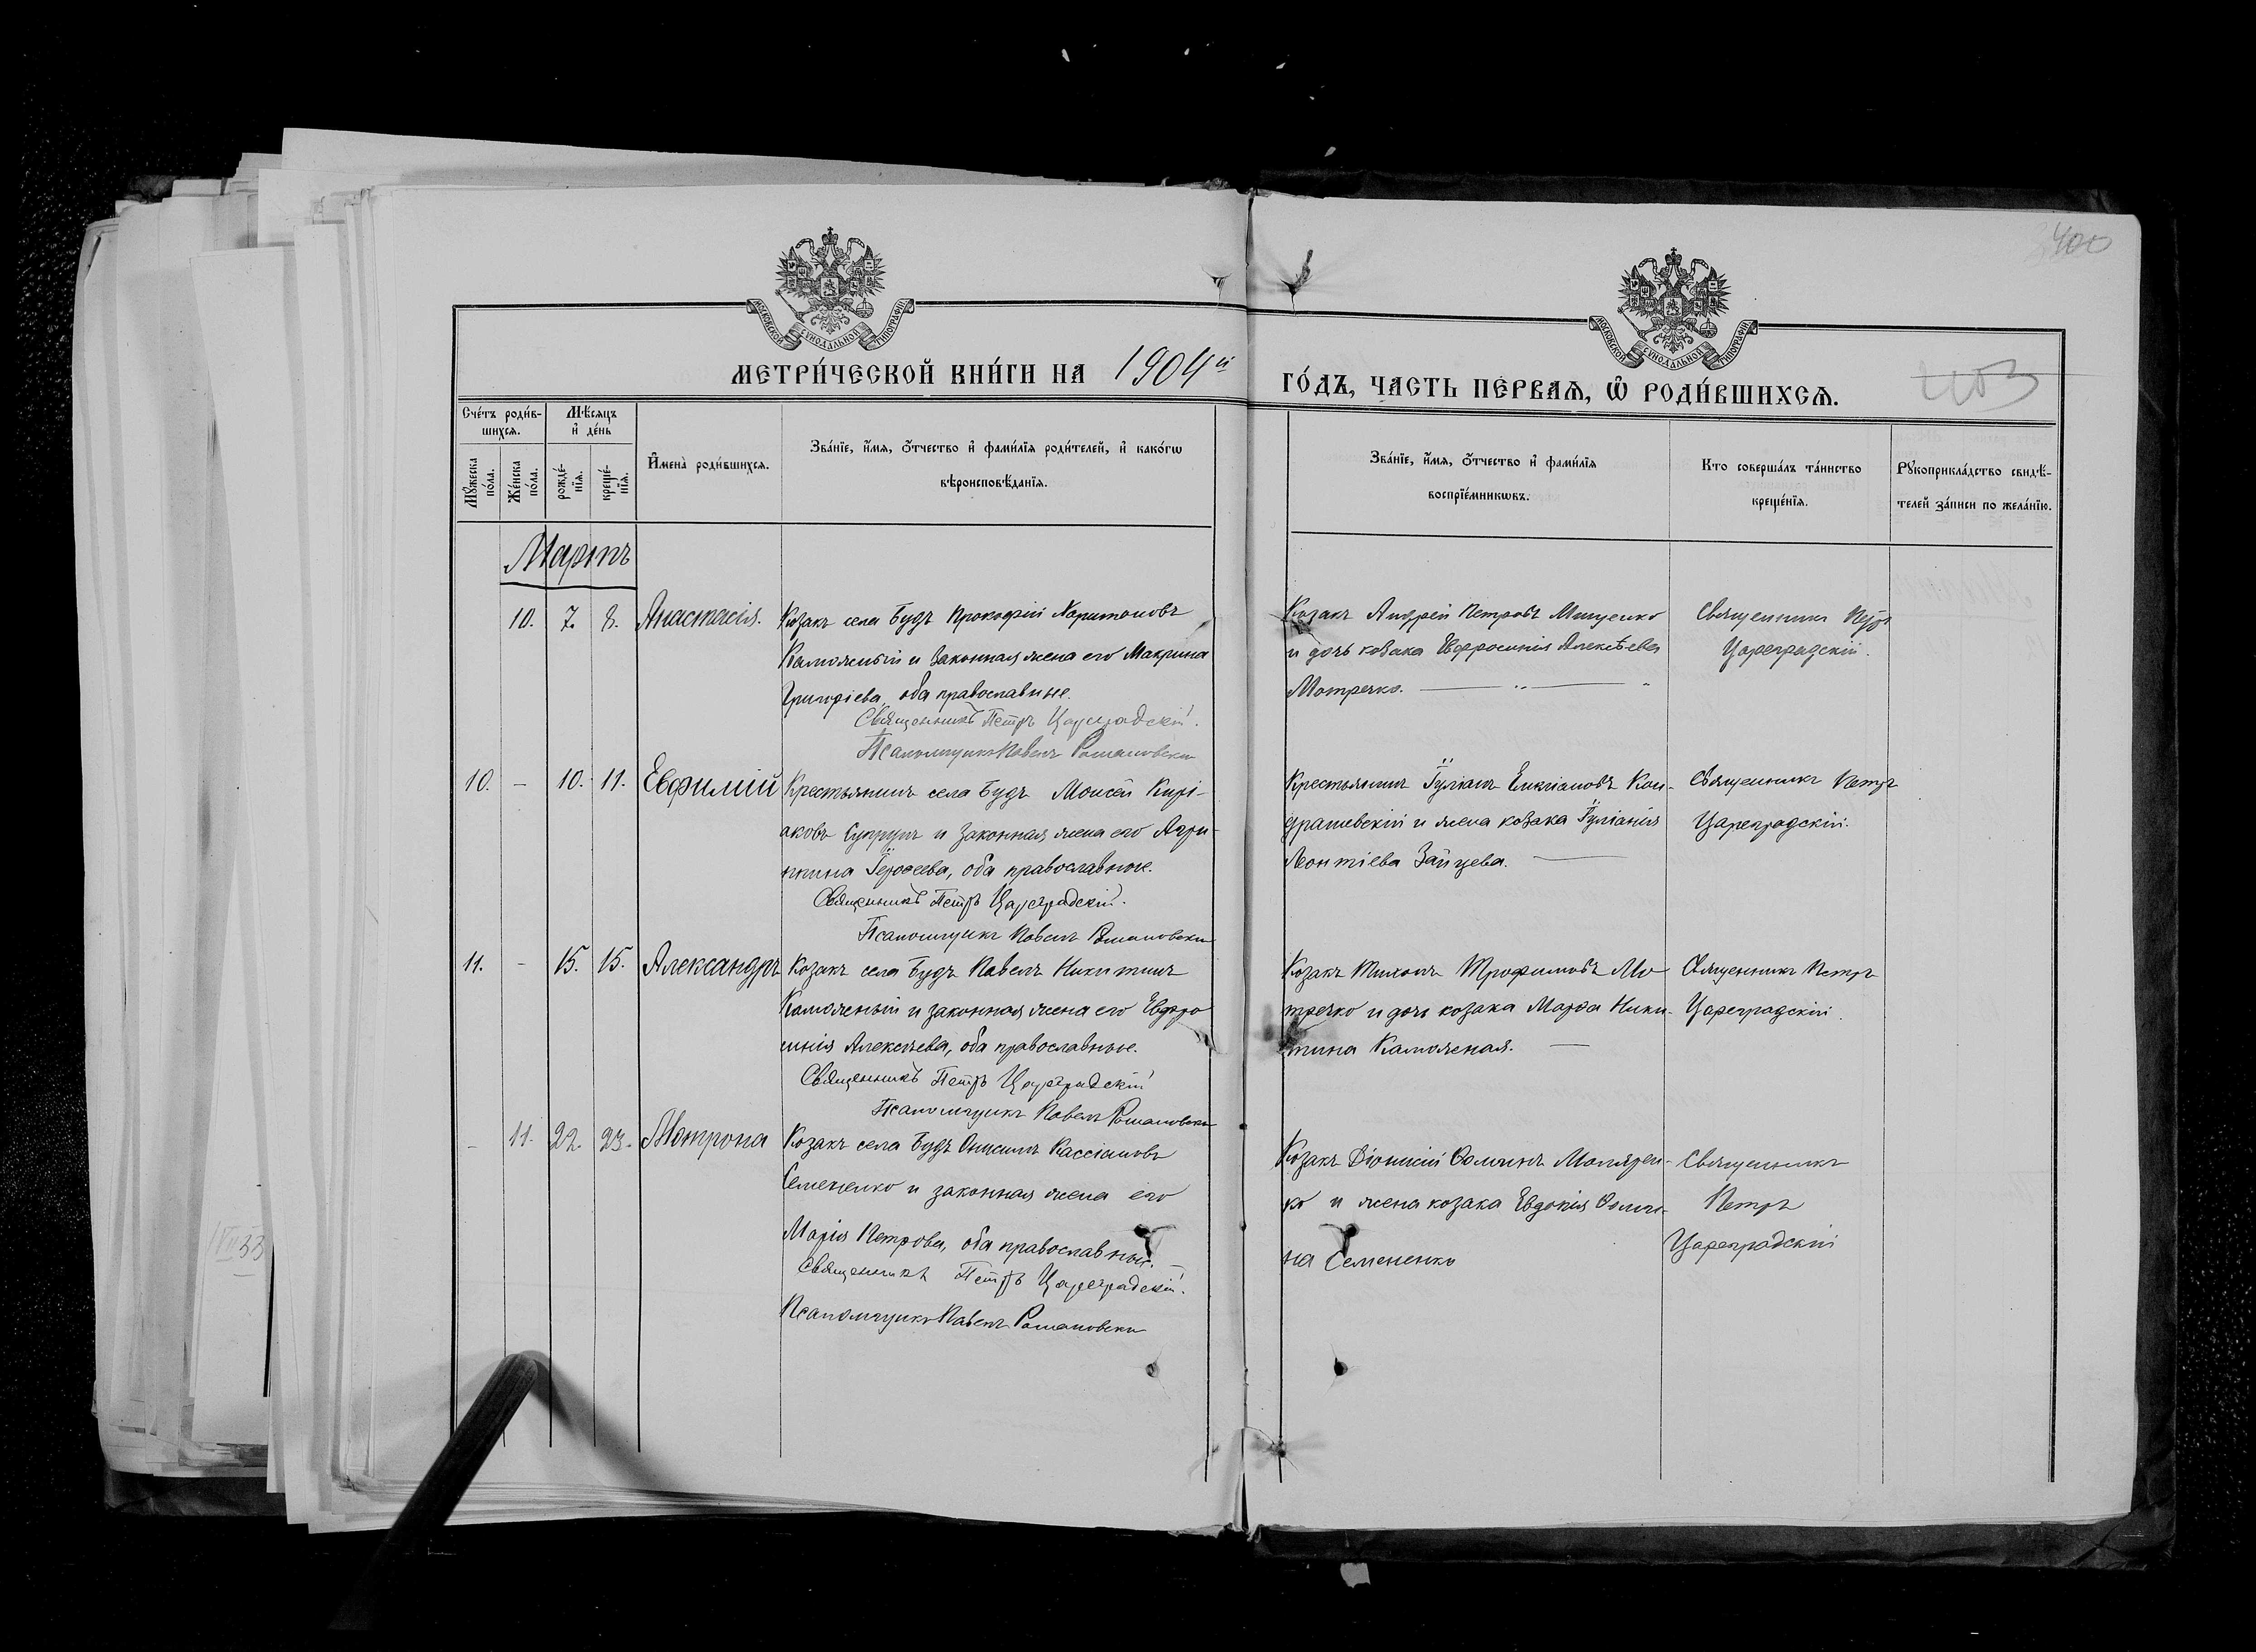 400
МОСКОВСКОЙ СѴНОДАЛЬНОЙ ТИПОГРАФІИ
МОСКОВСКОЙ СѴНОДАЛЬНОЙ ТИПОГРАФІИ
МЕТРИ́ЧЕСКОЙ КНИ́ГИ НА 1904й ГО́ДЪ, ЧАСТЬ ПЕ́РВАѦ, Ѿ РОДИ́ВШИХСѦ.
403
Сче́тъ роди́в-
шихсѧ.
Мꙋ́жеска по́ла.
Же́нска по́ла.
Мѣ́сяцъ
и҆ де́нь
рожде́-
нїѧ.
креще́-
нїѧ.
И҆мена̀ роди́вшихсѧ.
Зва́нїе, и҆́мя, ѻ҆́тчество и҆ фами́лїѧ роди́телей, и҆ како́гѡ
вѣроисповѣ́данїѧ.
Зва́нїе, и҆́мя, ѻ҆́тчество и҆ фами́лїѧ
воспрїе́мникѡвъ.
Кто соверша́лъ та́инство
креще́нїѧ.
Рꙋкоприкла́дство свидѣ́-
телей за́писи по жела́нїю.
Мартъ
10. 7. 8. Анастасія.
Козакъ села Будъ Прокофій Харитоновъ
и законная жена его Макрина
Григоріева, оба православные.
Священникъ Петръ Цареградскій.
Псаломщикъ Павелъ Романовскій
Козакъ Андрей Петровъ Мищенко
и дочь козака Евфросинія Алексѣева
Мотречко.
Священникъ Петръ
Цареградскій.
10. — 10. 11. Евфимій
Крестьянинъ села Будъ Моисей Кирі-
аковъ Супрунъ и законная жена его Агри-
пина Ероѳеева, оба православные.
Священникъ Петръ Цареградскій.
Псаломщикъ Павелъ Романовскій
Крестьянинъ Іуліанъ Кон-
драшевскій и жена козака Іуліанія
Леонтіева Зайцева.
Священникъ Петръ
Цареградскій.
11. - 15. 15. Александръ
Козакъ села Будъ Павелъ Никитинъ
и законная жена его Евфро
синія Алексѣева, оба православные.
Священникъ Петръ Цареградскій
Псаломщикъ Павелъ Романовскій
Козакъ Тихонъ Трофимовъ Мо
тречко и дочь козака Марѳа Ники-
тина
Священникъ Петръ
Цареградскій.
- 11. 22. 23. Матрона
Козакъ села Будъ Онисимъ Кассіановъ
Семененко и законная жена его
Марія Петрова, оба православные.
Священникъ Петръ Цареградскій.
Псаломщикъ Павелъ Романовскій
Козакъ Діонисій Ѳоминъ
и жена козака Евдокія Ѳоми-
на Семененко
Священникъ
Петръ
Цареградскій